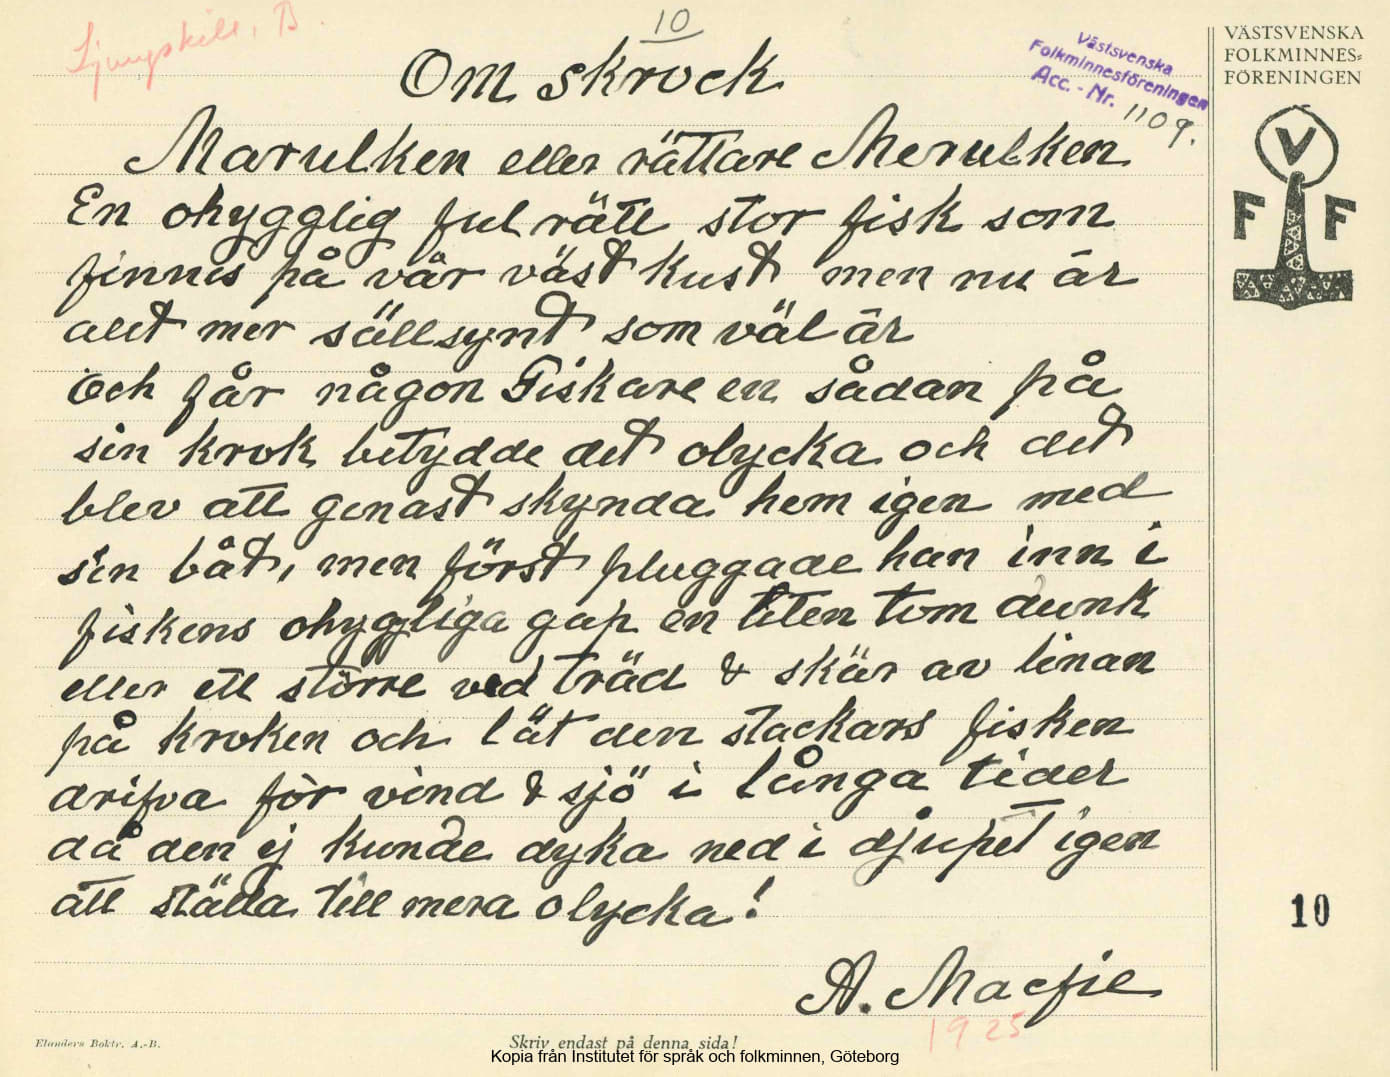 Ljungskile, B.
10
Om skrock
Västsvenska
Folkminnesföreningen
Acc. - Nr. 1109.
VÄSTSVENSKA
FOLKMINNES=
FÖRENINGEN
V
F F
Marulken eller rättare Merulken
En ohygglig ful rätt stor fisk som
finnes på vår väst kust men nu är
allt mer sällsynt som väl är
och får någon Fiskare en sådan på
sin krok betydde det olycka och det
blev att genast skynda hem igen med
sin båt, men först pluggade han inn i
fiskens ohyggliga gap en liten tom dunk
eller ett större ved träd & skär av linan
på kroken och lät den stackars fisken
drifva för vind & sjö i långa tider
då den ej kunde dyka ned i djupet igen
att ställa till mera olycka!
10
A. Macfie
1925
Elanders Boktr. A.-B.
Skriv endast på denna sida!
Kopia från Institutet för språk och folkminnen, Göteborg